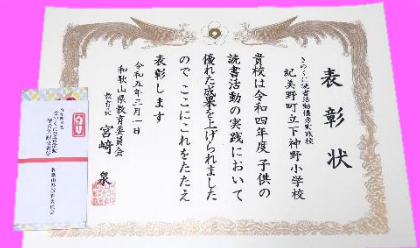 表彰状
きのくに読書活動優秀実践校
紀美野町立下神野小学校
貴校は令和四年度子供の
読書活動の実践において
優れた成果を上げられました
のでここにこれをたたえ
表彰します
令和五年三月一日
和歌山県教育委員会
教育長 宮﨑 泉